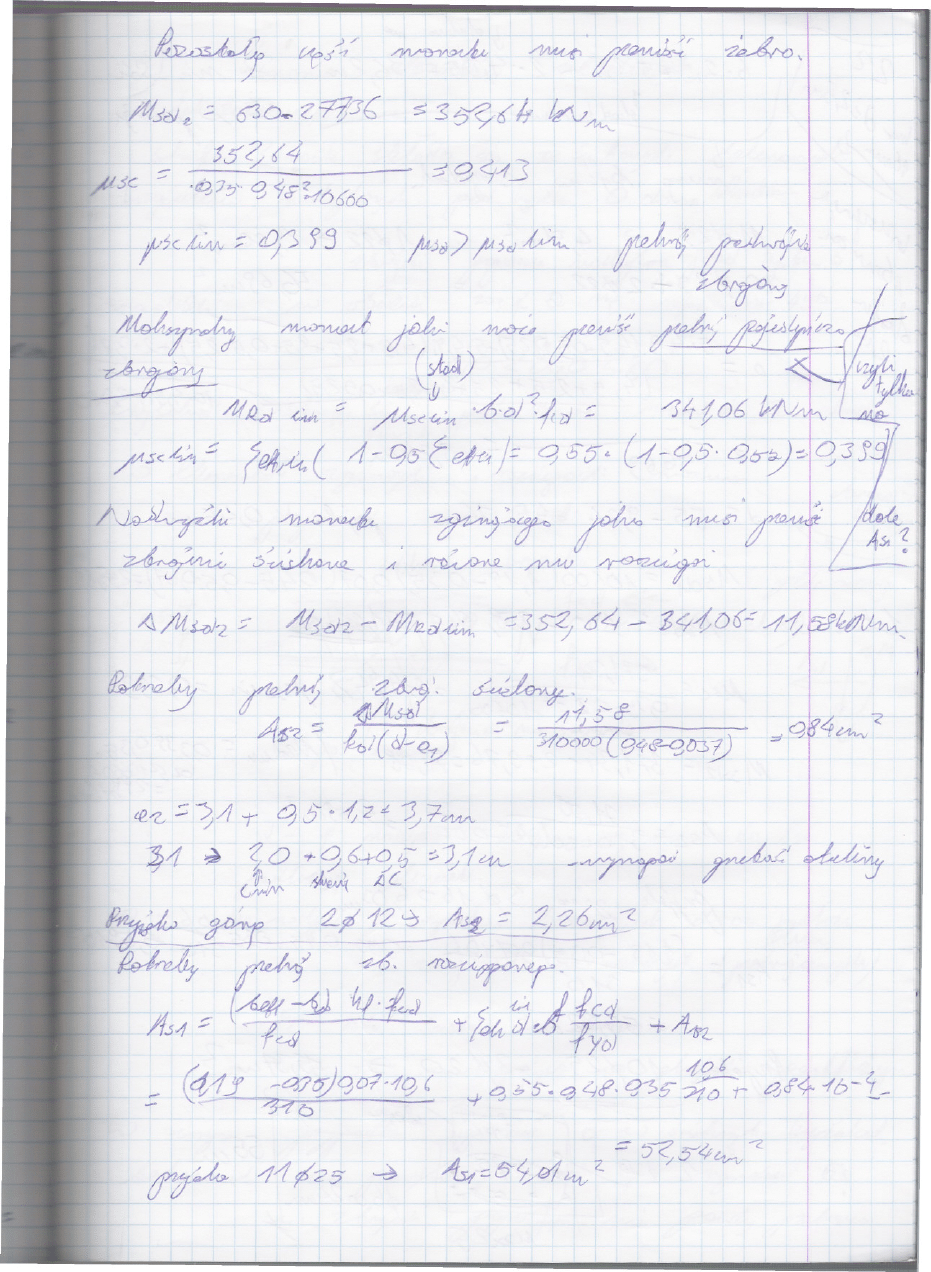 Pozostałą część momentu musi przenieść żebro.
Msd₂ = 630-277,36 = 352,64 kNm
μsc = 352,64 / 0,35·0,48²·10600 = 0,413
μsc lim = 0,399 μsd > μsd lim
zbrojony
Maksymalny moment jaki może przenieść pojedynczo
zbrojony (stąd)
MRd lim = μsc lim · b·d²·fcd = 341,06 kNm
czyli tylko na dole As1?
μsc lim = ξeff,lim (1-0,5 ξeff,lim) = 0,55·(1-0,5·0,55) = 0,399
Nadwyżka momentu zginającego jaką musi przenieść
zbrojenie ściskane i
ΔMsd2 = Msd2 - MRd lim = 352,64 - 341,06 = 11,58 kNm
Potrzebny zbroj.
As2 = ΔMsd / fyd(d-a2) = 11,58 / 310000(0,48-0,037) = 0,84 cm²
a2 = 3,1 + 0,5·1,2 = 3,7 cm
3,1 → 2,0 + 0,6 + 0,5 = 3,1 cm otuliny
cmin ΔC
Przyjęto górą 2ϕ12 → As2 = 2,26 cm²
Potrzebny zb. rozciąganego.
As1 = (beff - b) hf·fcd / fcd + ξeff lim d·b fcd/fyd + As2
= (1,19 - 0,35) 0,07·10,6 / 310 + 0,55·0,48·0,35 10,6/310 + 0,84·10-4 =
= 52,54 cm²
przyjęto 11ϕ25 → As1 = 54,01 cm²